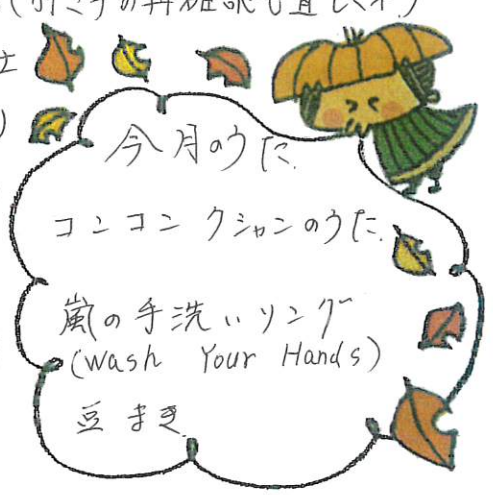 今月のうた
コンコン クシャンのうた
嵐の手洗いソング
(Wash Your Hands)
豆まき